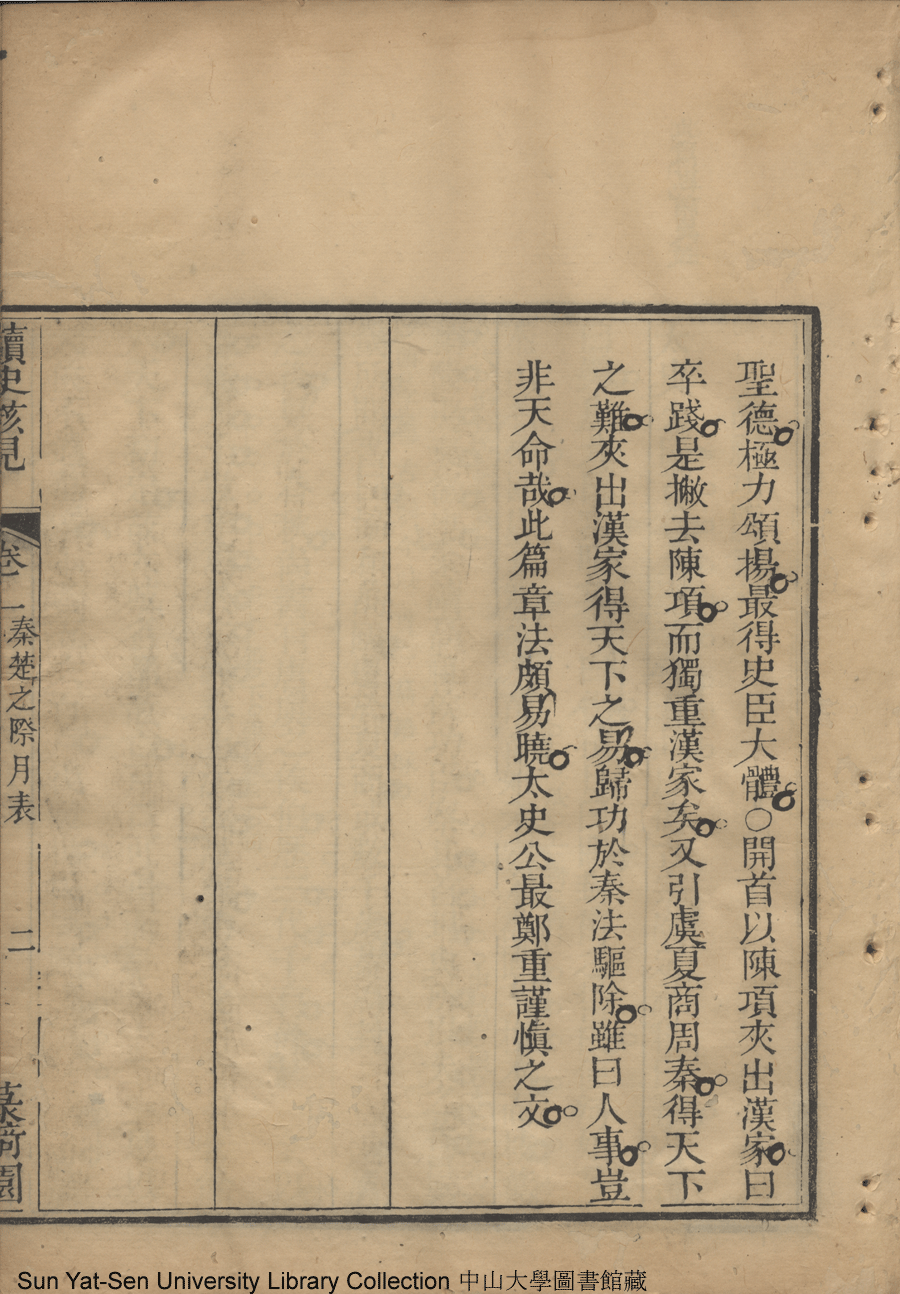 聖德極力頌揚最得史臣大體○開首以陳項夾出漢家曰
卒踐是撇去陳項而獨重漢家矣又引虞夏商周秦得天下
之難夾出漢家得天下之易歸功於秦法驅除雖曰人事豈
非天命哉此篇章法頗易曉太史公最鄭重謹慎之文
讀史 見
卷一
秦楚之際月表
二
園
Sun Yat-Sen University Library Collection 中山大學圖書館藏